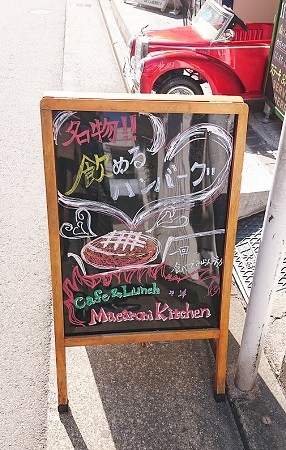 名物!!
飲める
ハンバーグ
Cafe & Lunch
Macaroni Kitchen